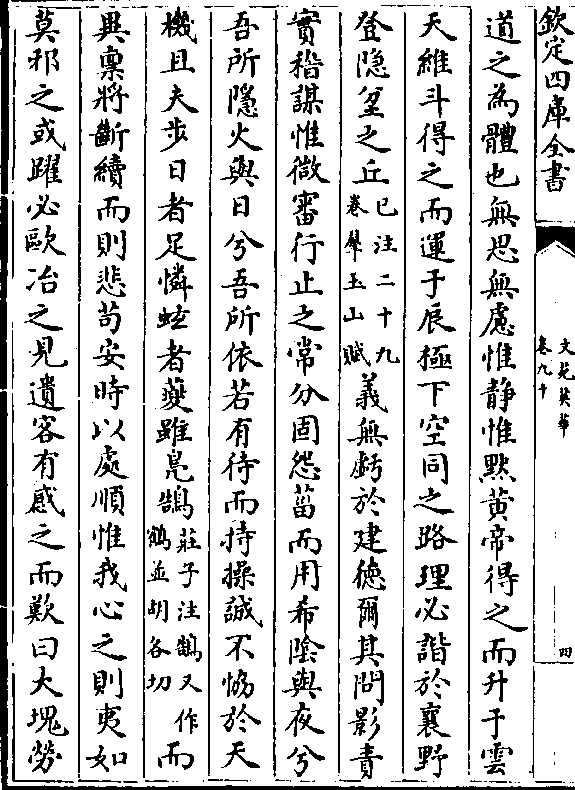 欽定四庫全書
文苑英華
卷九十
四
道之為體也無思無慮惟静惟默黄帝得之而升于雲
天維斗得之而運于辰極下空同之路理必諧於襄野
登隐坌之丘已注二十九卷舉玉山賦義無虧於建德爾其問影責
實稽謀惟微審行止之常分固怨萏而用希陰與夜兮
吾所隱火與日兮吾所依若有待而持操誠不恊於天
機且夫步日者足憐蚿者夔雖凫鵠莊子注鵠又作鶴並胡各切而
異禀將斷續而則悲苟安時以處順惟我心之則夷如
莫邪之或躍必歐冶之見遺客有感之而歎曰大塊勞